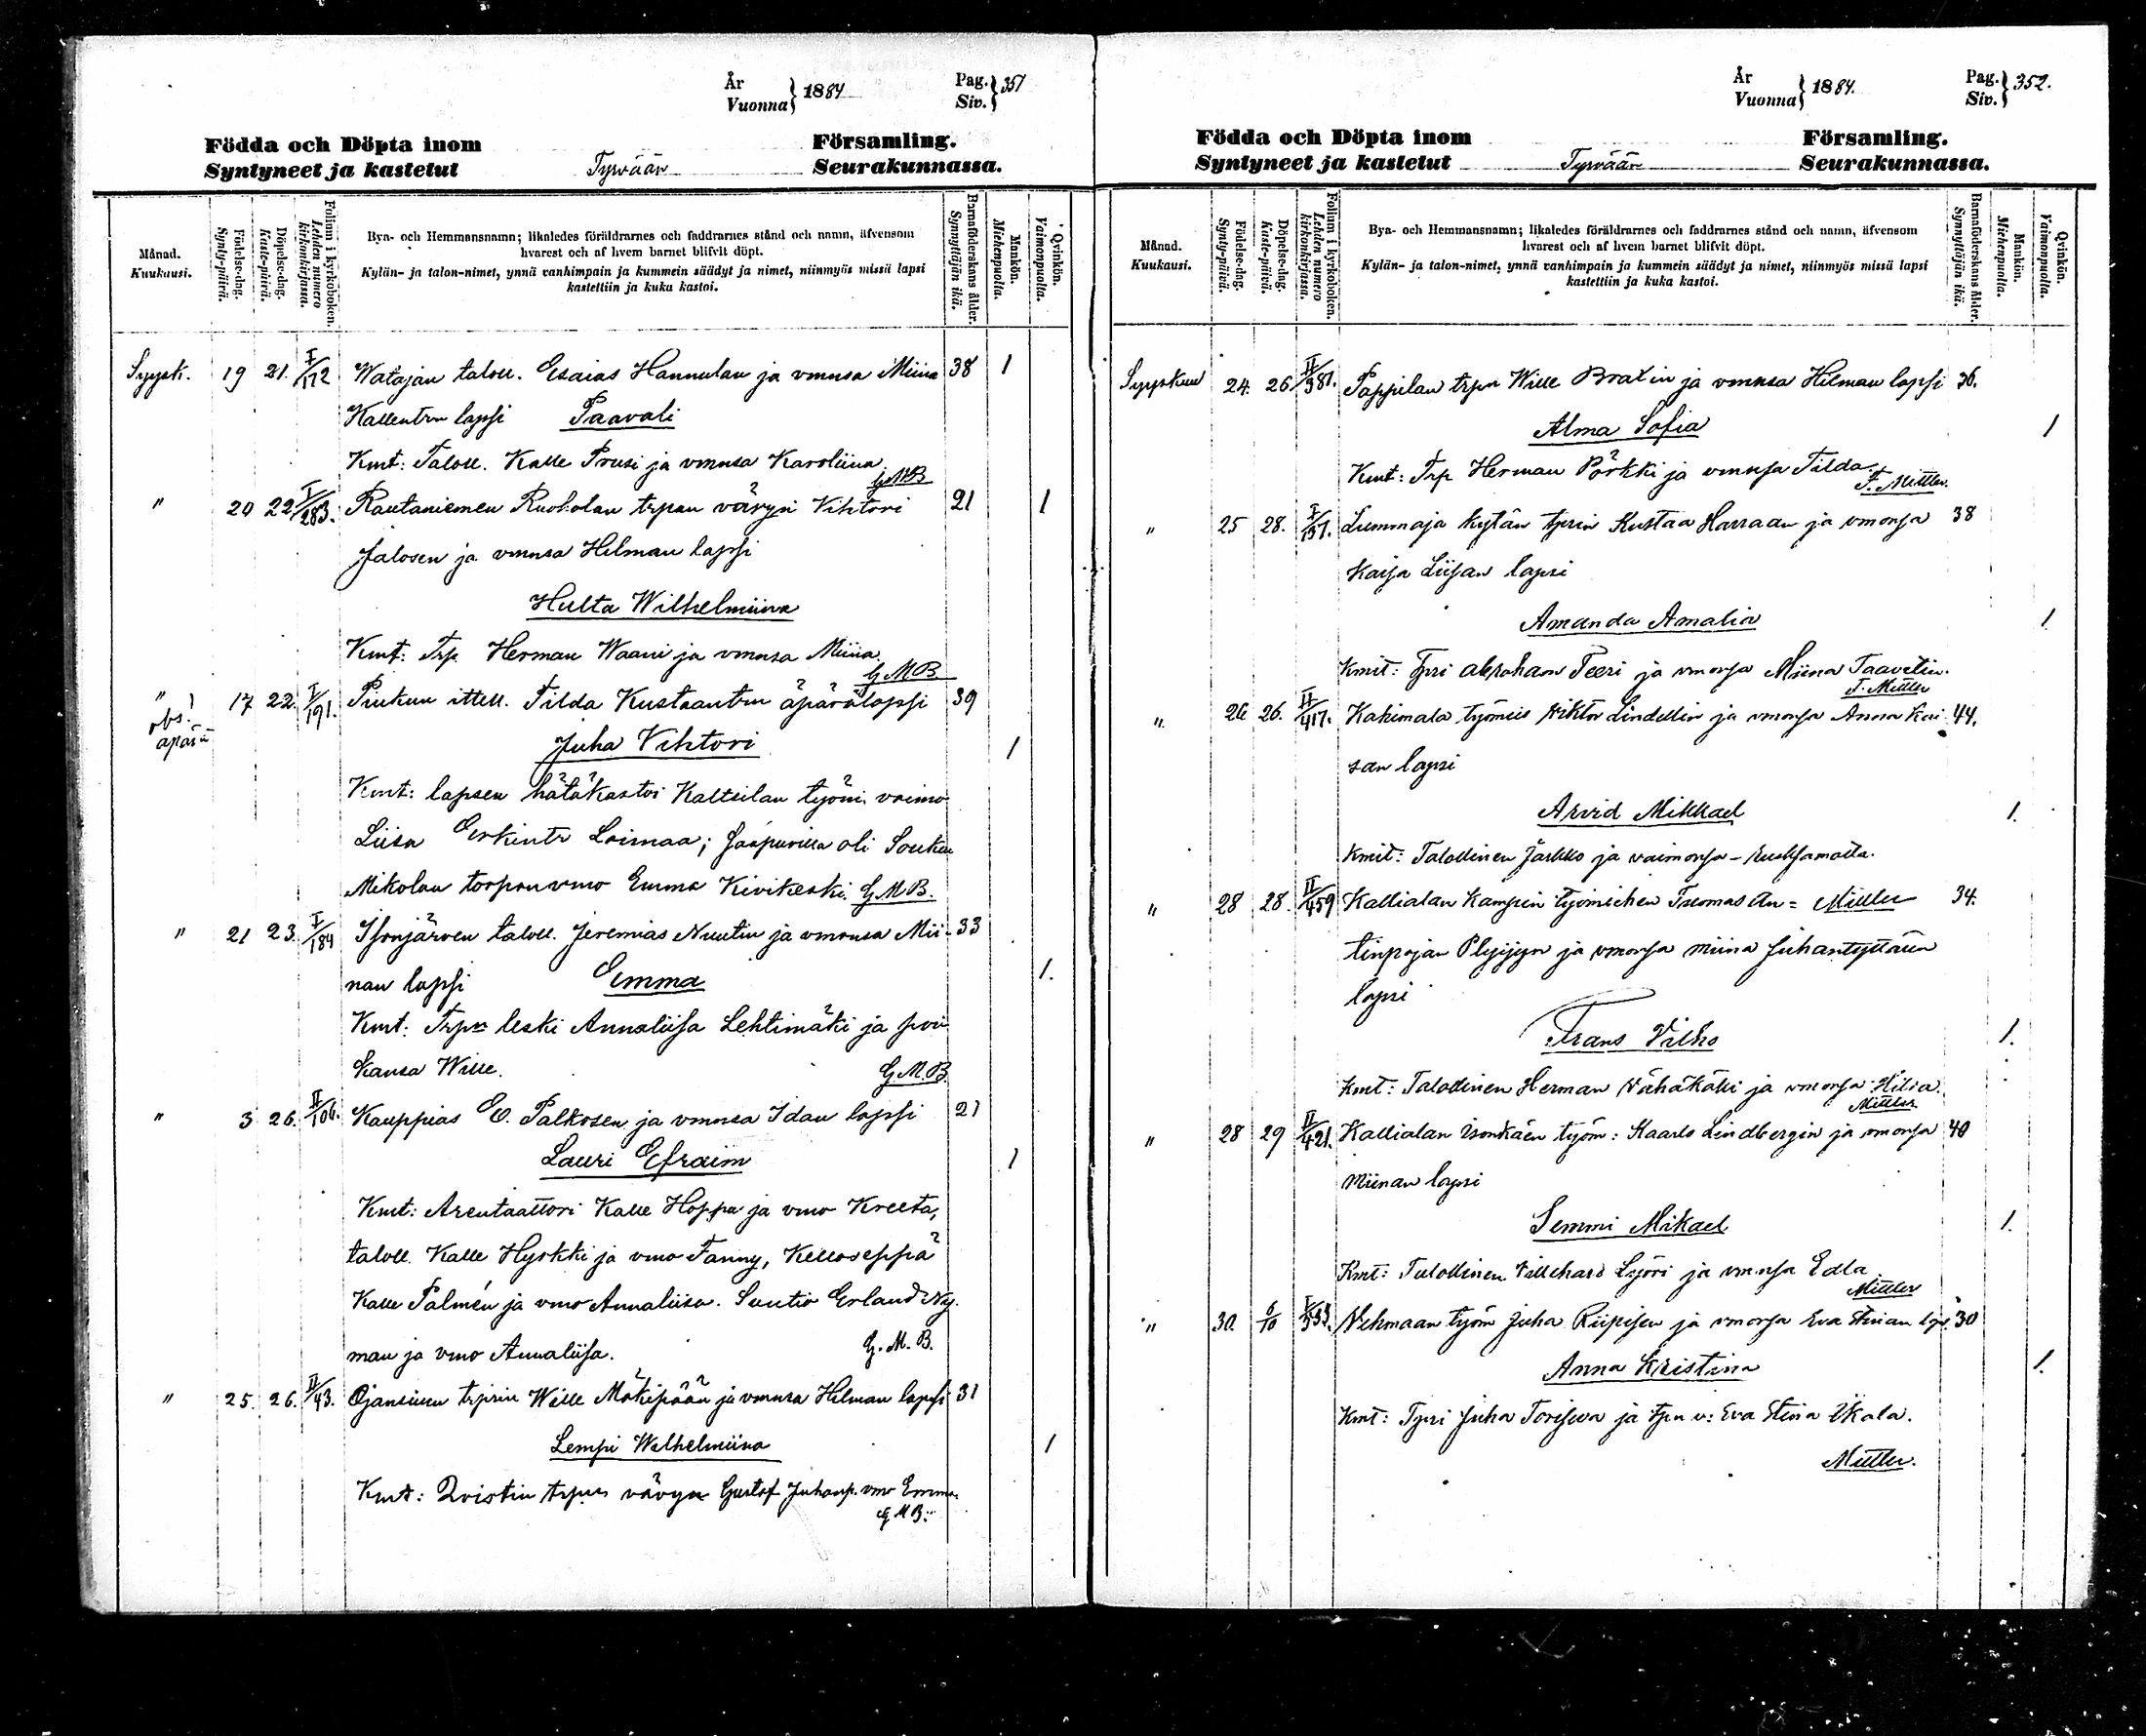 År
Vuonna } 1884
Pag.
Siv. } 351
Födda och Döpta inom Församling.
Syntyneet ja kastetut Tyrvään Seurakunnassa.
Månad.
Kuukausi.
Födelse-dag.
Synty-päivä.
Döpelse-dag.
Kaste-päivä.
Folium i kyrkoboken.
Lehden numero kirkonkirjassa.
Bya- och Hemmansnamn; likaledes föräldrarnes och faddrarnes stånd och namn, äfvensom
hvarest och af hvem barnet blifvit döpt.
Kylän- ja talon-nimet, ynnä vanhimpain ja kummein säädyt ja nimet, niinmyös missä lapsi
kastettiin ja kuka kastoi.
Barnaföderskans ålder.
Synnyttäjän ikä.
Mankön.
Miehenpuolta.
Qvinkön.
Vaimonpuolta.
Syysk. 19 21. I/172 Watajan taloll. Esaias Hannulan ja vmnsa Miina 38 1
Kallentrn lapsi Paavali
Kmt: Taloll. Kalle Prusi ja vmnsa Karoliina
G.M.B
" 20 22 I/283. Rautaniemen Ruoholan trpan vävyn Vihtori 21 1
Jalosen ja vmnsa Hilman lapsi
Hulta Wilhelmiina
Kmt: Trp. Herman Waani ja vmnsa Miina.
G.M.B
" 17 22. I/191. Piukun ittell. Tilda Kustaantrn äpärälapsi 39
obs!
äpärä
Juha Vihtori 1
Kmt: lapsen hätäkastoi Kaltsilan työm. vaimo
Liisa Erkintr Loimaa; Saapuvilla oli Soukon
Mikolan torpanvmo Emma Kivikoski. G.M.B.
" 21 23. I/184 Isonjärven taloll. Jeremias Nuutin ja vmonsa Mii- 33
nan lapsi Emma 1.
Kmt: Trpn leski Annaliisa Lehtimäki ja poi
kansa Wille. G.M.B.
" 3 26. II/106. Kauppias E. Palkosen ja vmnsa Idan lapsi 21
Lauri Efraim 1
Kmt: Arentaattori Kalle Hoppu ja vmo Kreeta,
taloll. Kalle Hyrkki ja vmo Fanny, Kelloseppä
Kalle Palmén ja vmo Annaliisa. Suutio Erland Ny-
man ja vmo Annaliisa. G.M.B.
" 25. 26. II/43. Ojansuun trprin Wille Mäkipään ja vmnsa Hilman lapsi 31
Lempi Wilhelmiina 1
Kmt: Qvistin trpn vävyn Gustaf Juhanp. vmo Emma.
G.M.B.
År
Vuonna } 1884.
Pag.
Siv. } 352.
Födda och Döpta inom Församling.
Syntyneet ja kastetut Tyrvään Seurakunnassa.
Månad.
Kuukausi.
Födelse-dag.
Synty-päivä.
Döpelse-dag.
Kaste-päivä.
Folium i kyrkoboken.
Lehden numero kirkonkirjassa.
Bya- och Hemmansnamn; likaledes föräldrarnes och faddrarnes stånd och namn, äfvensom
hvarest och af hvem barnet blifvit döpt.
Kylän- ja talon-nimet, ynnä vanhimpain ja kummein säädyt ja nimet, niinmyös missä lapsi
kastettiin ja kuka kastoi.
Barnaföderskans ålder.
Synnyttäjän ikä.
Mankön.
Miehenpuolta.
Qvinkön.
Vaimonpuolta.
Syyskuu 24. 26 II/381. Pappilan trpn Wille Bralin ja vmnsa Hilman lapsi 36.
Alma Sofia 1
Kmt: Trp. Herman Pörkki ja vmnsa Tilda.
F. Mittler.
" 25 28. I/131. Lummaja kylän tprin Kustaa Harraan ja vmonsa 38
Kaisa Liisan lapsi
Amanda Amalia 1.
Kmit: Tpri Abraham Teeri ja vmonsa Miina Taavetin.
F. Mittler
" 26 26. II/417. Kakimala työmies Viktor Lindellin ja vmonsa Anna Kai 44.
san lapsi
Arvid Mikkael 1.
Kmit: Talollinen Jaskko ja vaimonsa - Ruksamalla.
" 28 28. II/459 Kallialan Kampin työmiehen Tuomas An= Mittler 34.
tinpojan Plyijyn ja vmonsa Miina Juhantyttären
lapsi
Frans Vilho 1.
Kmt: Talollinen Herman Vähäkälli ja vmonsa Hilia.
Mittler
" 28 29 II/421. Kallialan Isonkäen työm: Kaarlo Lindbergin ja vmonsa 40
Miinan lapsi
Semmi Mikael 1.
Kmt: Talollinen Villehard Lyöri ja vmnsa Edla.
Mittler
" 30. 6/10 I/333. Vehmaan työm Juha Riipisen ja vmonsa Eva Stiinan lps. 30
Anna Kristina 1.
Kmt: Tpri Juha Torisva ja tpn v: Eva Stina Ikala.
Mittler.